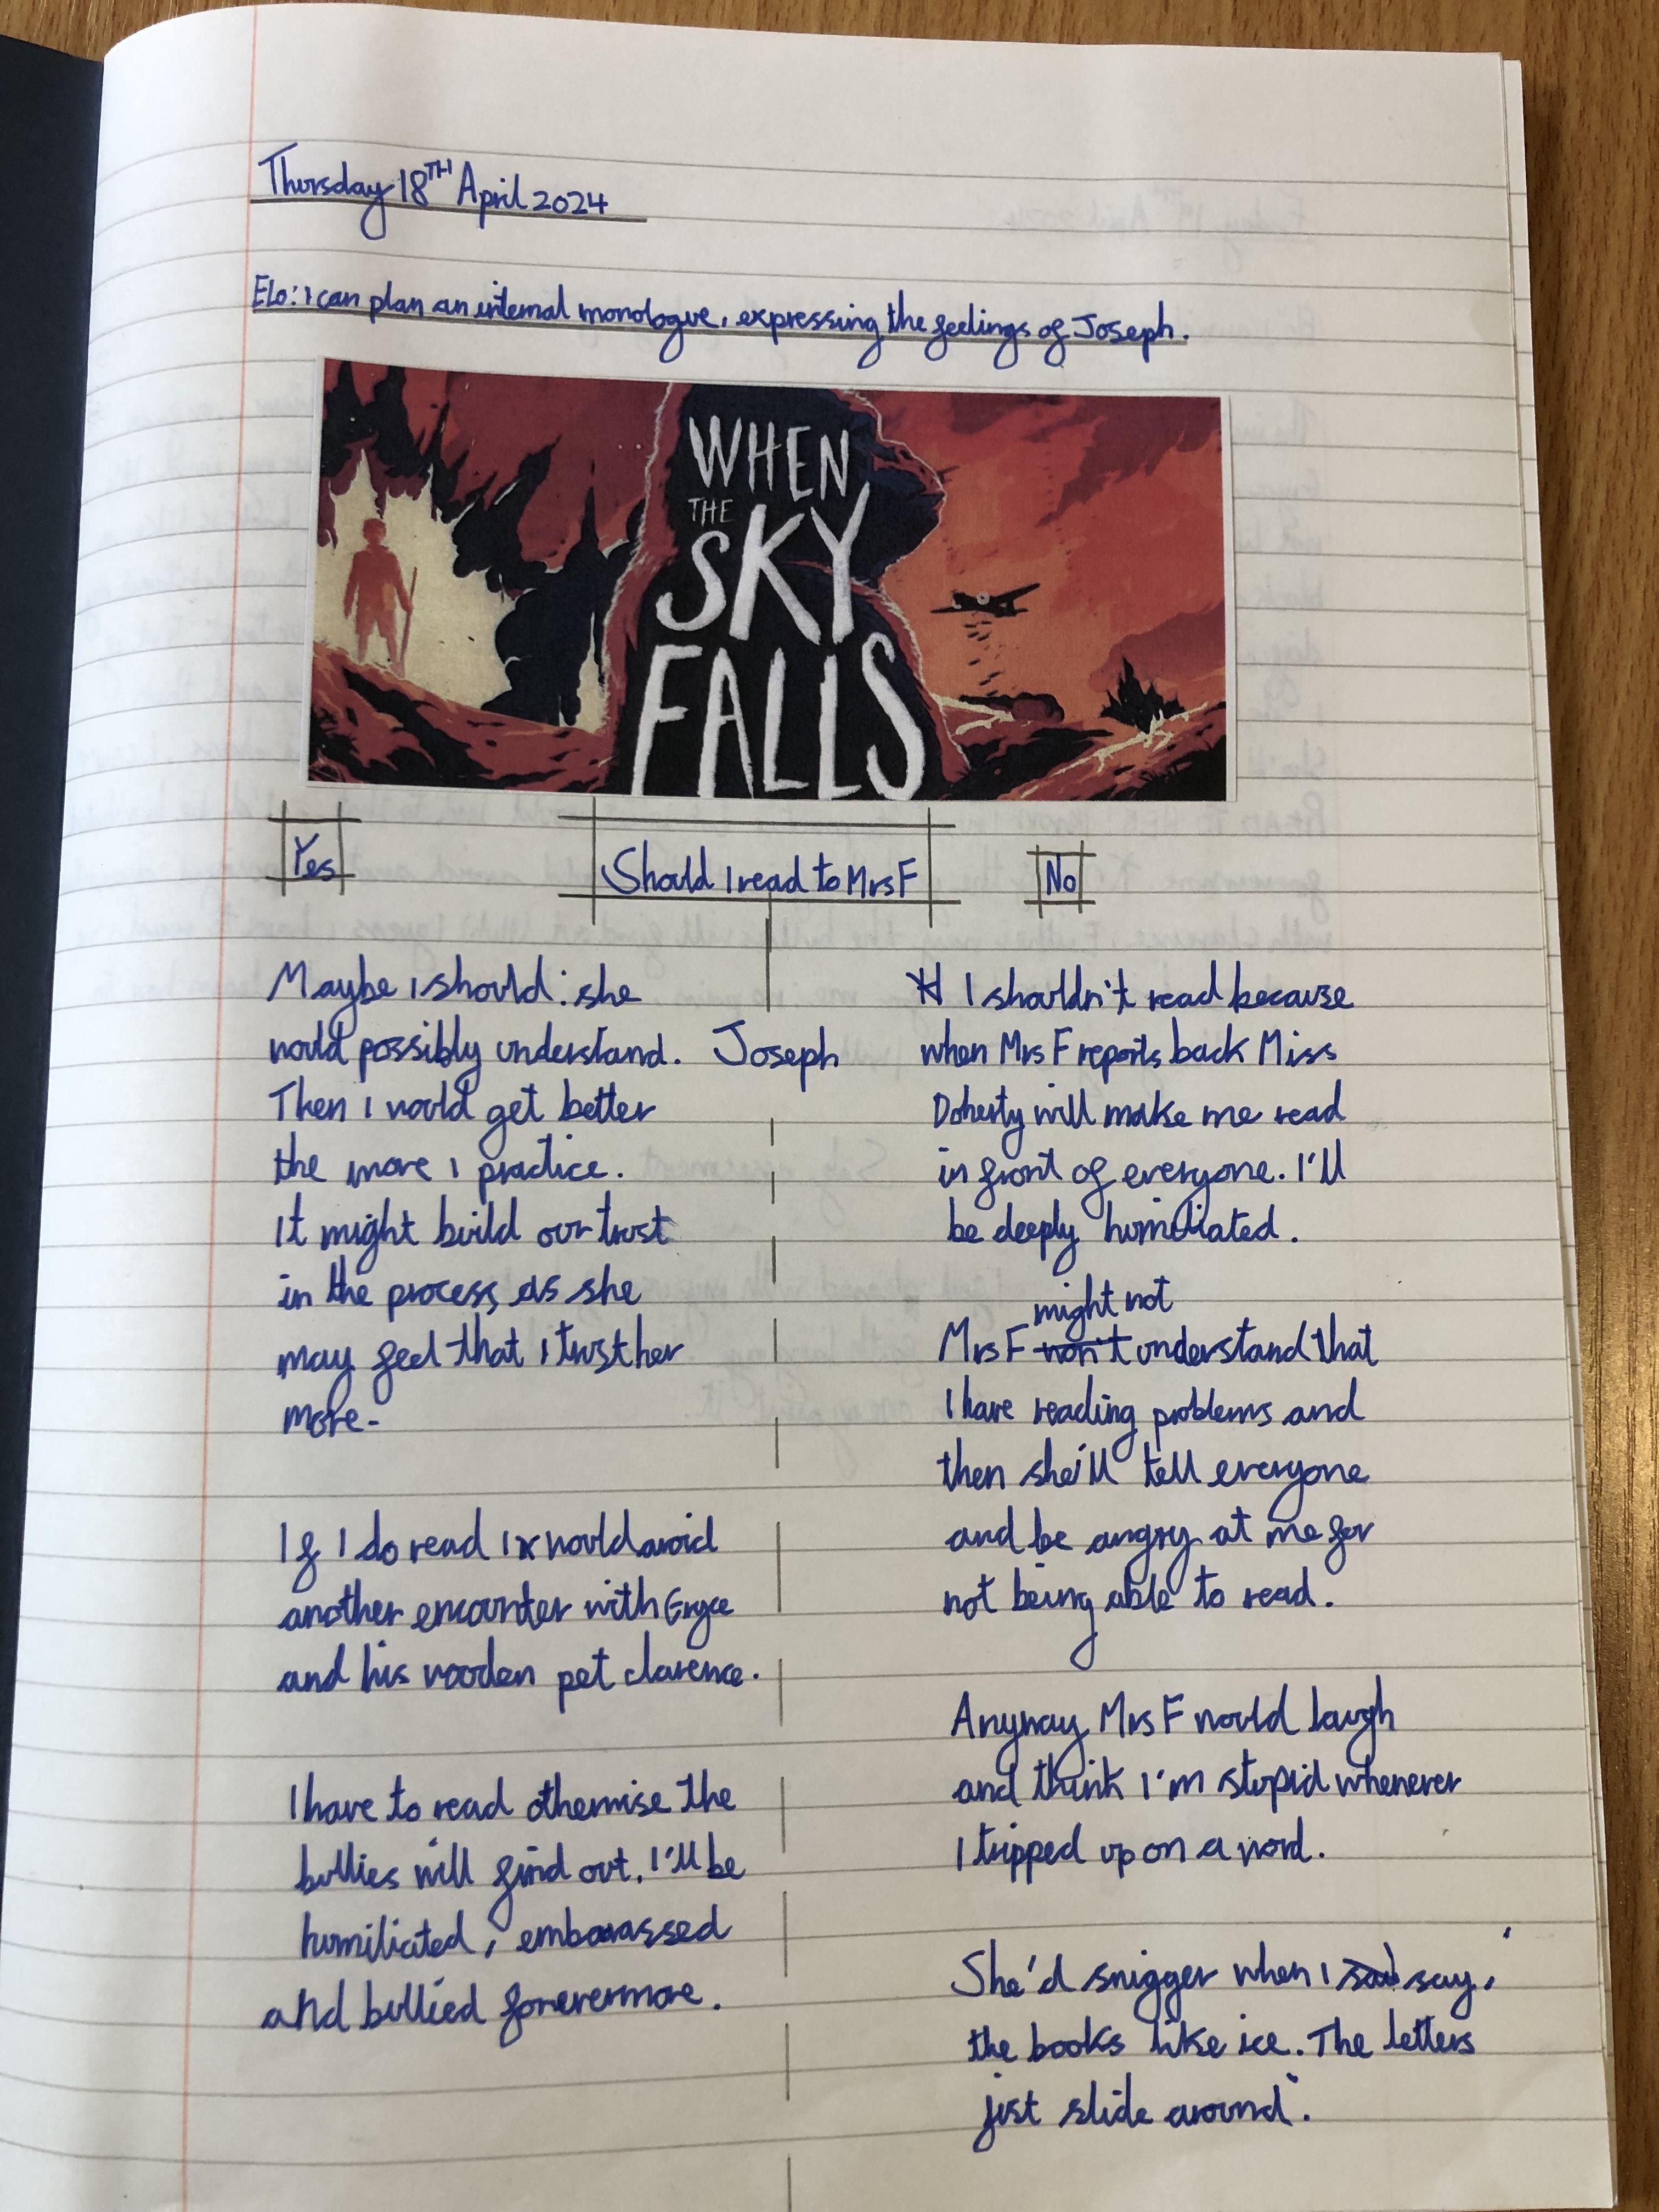 Thursday 18TH April 2024
Elo: I can plan an internal monologue, expressing the feelings of Joseph.
WHEN
THE
SKY
FALLS
Yes
Should I read to Mrs F
No
Maybe I should: she
would possibly understand.
Then I would get better
the more I practice.
It might build our trust
in the process, as she
may feel that I trust her
more.
If I do read I would avoid
another encounter with Gryce
and his wooden pet clarence.
I have to read otherwise the
bullies will find out. I'll be
humiliated, embarassed
and bullied forevermore.
Joseph
I shouldn't read because
when Mrs F reports back Miss
Doherty will make me read
in front of everyone. I'll
be deeply humiliated.
might not
Mrs F won't understand that
I have reading problems and
then she'll tell everyone
and be angry at me for
not being able to read.
Anyway Mrs F would laugh
and think I'm stupid whenever
I tripped up on a word.
She'd snigger when I say, '
the books like ice. The letters
just slide around'.